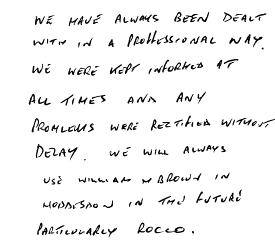 WE HAVE ALWAYS BEEN DEALT
WITH IN A PROFFESSIONAL WAY.
WE WERE KEPT INFORMED AT
ALL TIMES AND ANY
PROMLEMS WERE RECTIFIED WITHOUT
DELAY. WE WILL ALWAYS
USE WILLIAM H BROWN IN
HODDESDON IN THE FUTURE
PARTICULARLY ROCCO.